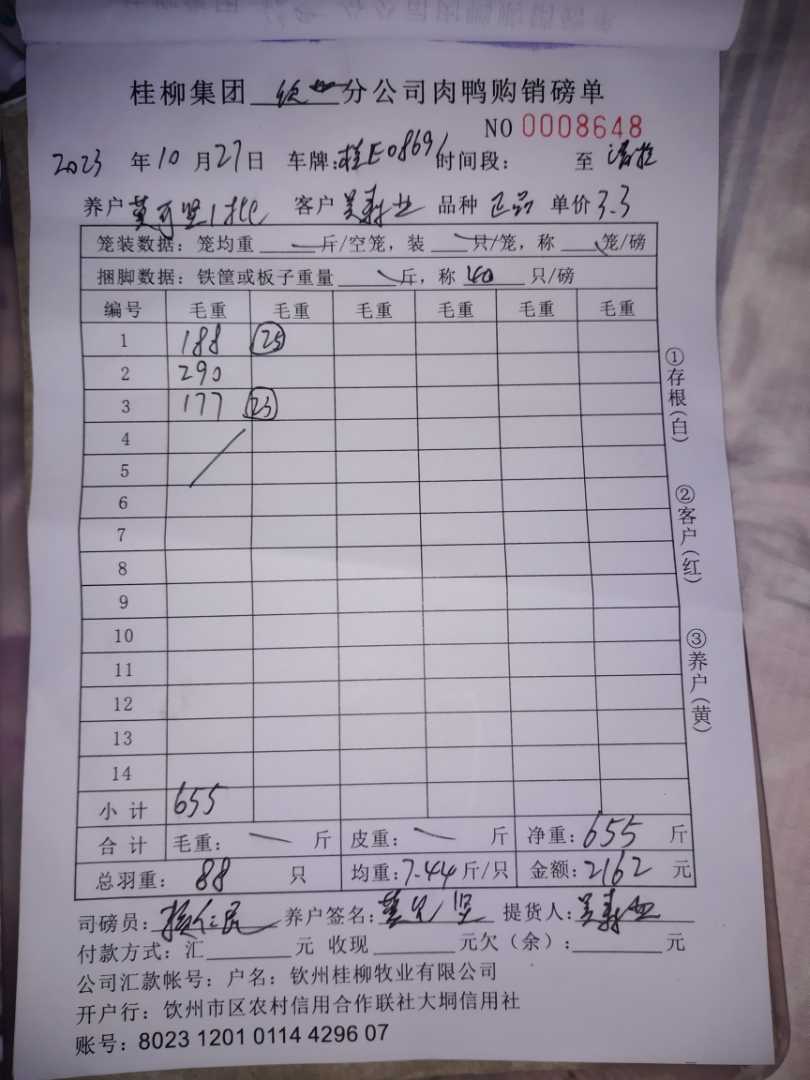 桂柳集团 钦州 分公司肉鸭购销磅单
NO 0008648
2023 年 10 月 27 日 车牌:桂E08691 时间段: 至
养户 客户 吴寿业 品种 正品 单价 3.3
笼装数据: 笼均重 斤/空笼, 装 只/笼, 称 笼/磅
捆脚数据: 铁筐或板子重量 斤, 称 40 只/磅
编号 毛重 毛重 毛重 毛重 毛重 毛重
1 188 25
2 290
3 177 23
4
5
6
7
8
9
10
11
12
13
14
小计 655
合计 毛重: 斤 皮重: 斤 净重: 655 斤
总羽重: 88 只 均重: 7.44 斤/只 金额: 2162 元
①存根(白)
②客户(红)
③养户(黄)
司磅员: 养户签名: 提货人: 吴寿业
付款方式: 汇 元 收现 元欠(余): 元
公司汇款帐号: 户名: 钦州桂柳牧业有限公司
开户行: 饮州市区农村信用合作联社大垌信用社
账号: 8023 1201 0114 4296 07